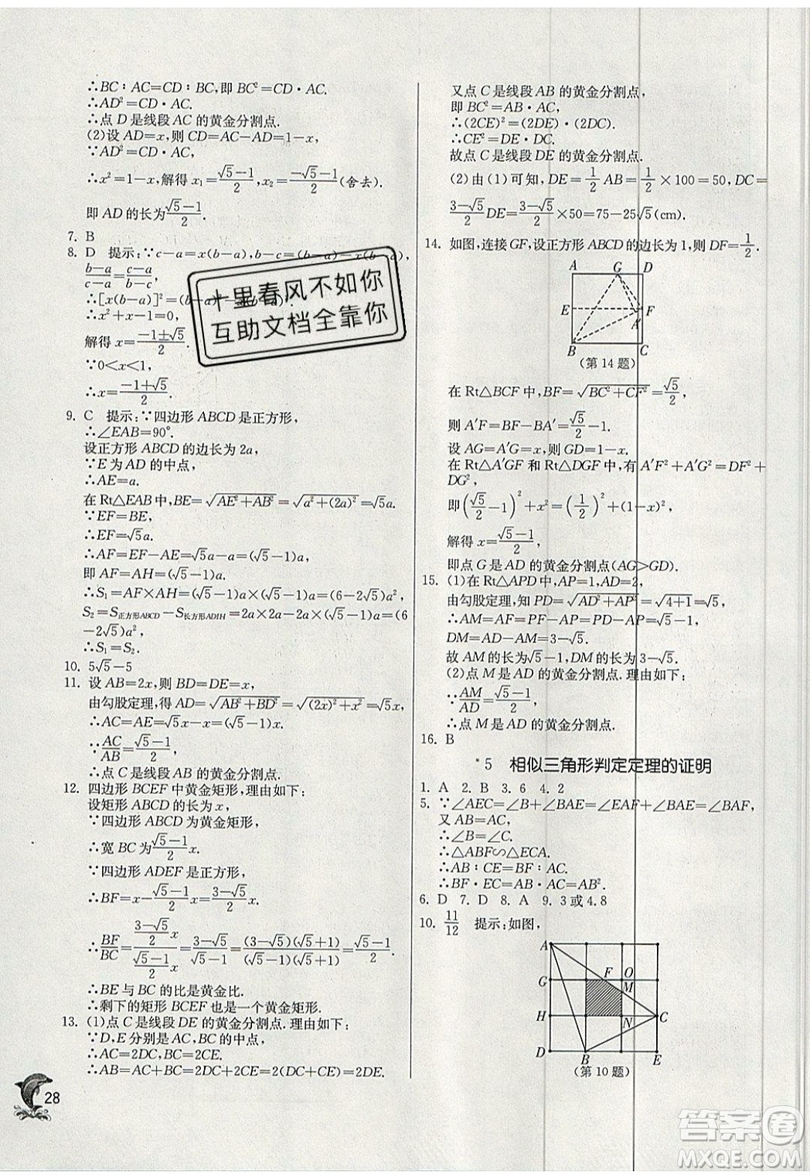 ∴BC∶AC=CD∶BC,即 BC²=CD·AC.
∴AD²=CD·AC.
∴点 D 是线段 AC 的黄金分割点.
(2)设 AD=x,则 CD=AC-AD=1-x,
∵AD²=CD·AC,
∴x²=1-x,解得 x₁=(√5-1)/2,x₂=(-√5-1)/2(舍去).
即 AD 的长为(√5-1)/2.
7. B
8. D 提示:∵c-a=x(b-a),b-c=
(b-a)/(c-a)=
∴[x(b-a)]²=
∴x²+x-1=0,
解得 x=(-1±√5)/2.
∵0<x<1,
∴x=(-1+√5)/2.
9. C 提示:∵四边形 ABCD 是正方形,
∴∠EAB=90°.
设正方形 ABCD 的边长为 2a,
∵E 为 AD 的中点,
∴AE=a.
在 Rt△EAB 中,BE=√(AE²+AB²)=√(a²+(2a)²)=√5a.
∵EF=BE,
∴EF=√5a.
∴AF=EF-AE=√5a-a=(√5-1)a,
即 AF=AH=(√5-1)a.
∴S₁=AF×AH=(√5-1)a×(√5-1)a=(6-2√5)a²,
S₂=S正方形ABCD-S长方形ADIH=2a×2a-2a×(√5-1)a=(6
-2√5)a²,
∴S₁=S₂.
10. 5√5-5
11. 设 AB=2x,则 BD=DE=x,
由勾股定理,得 AD=√(AB²+BD²)=√((2x)²+x²)=√5x,
∴AC=AE=√5x-x=(√5-1)x.
∵AC/AB=(√5-1)/2,
∴点 C 是线段 AB 的黄金分割点.
12. 四边形 BCEF 中黄金矩形.理由如下:
设矩形 ABCD 的长为 x,
∵四边形 ABCD 为黄金矩形,
∴宽 BC 为(√5-1)/2 x.
∵四边形 ADEF 是正方形,
∴BF=x-(√5-1)/2 x=(3-√5)/2 x,
∴BF/BC=((3-√5)/2 x)/((√5-1)/2 x)=(3-√5)/(√5-1)=((3-√5)(√5+1))/((√5-1)(√5+1))=(√5-1)/2.
∴BE 与 BC 的比是黄金比.
∴剩下的矩形 BCEF 也是一个黄金矩形.
13. (1)点 C 是线段 DE 的黄金分割点.理由如下:
∵D,E 分别是 AC,BC 的中点,
∴AC=2DC,BC=2CE.
∴AB=AC+BC=2DC+2CE=2DE.
28
又点 C 是线段 AB 的黄金分割点,
即 BC²=AB·AC,
∴(2CE)²=(2DE)·(2DC).
∴CE²=DE·DC.
故点 C 是线段 DE 的黄金分割点.
(2)由(1)可知,DE=1/2 AB=1/2×100=50,DC=
(3-√5)/2 DE=(3-√5)/2×50=75-25√5(cm).
14. 如图,连接 GF,设正方形 ABCD 的边长为 1,则 DF=1/2.
A G D
E F
A′
B C
(第 14 题)
在 Rt△BCF 中,BF=√(BC²+CF²)=√5/2,
则 A′F=BF-BA′=√5/2-1.
设 AG=A′G=x,则 GD=1-x.
在 Rt△A′GF 和 Rt△DGF 中,有 A′F²+A′G²=DF²+
DG²,
即(√5/2-1)²+x²=(1/2)²+(1-x)²,
解得 x=(√5-1)/2.
即点 G 是 AD 的黄金分割点(AG>GD).
15. (1)在 Rt△APD 中,AP=1,AD=2,
由勾股定理,知 PD=√(AD²+AP²)=√(4+1)=√5.
∴AM=AF=PF-AP=PD-AP=√5-1,
DM=AD-AM=3-√5.
故 AM 的长为√5-1,DM 的长为 3-√5.
(2)点 M 是 AD 的黄金分割点.理由如下:
∵AM/AD=(√5-1)/2,
∴点 M 是 AD 的黄金分割点.
16. B
*5 相似三角形判定定理的证明
1. A 2. B 3. 6 4. 2
5. ∵∠AEC=∠B+∠BAE=∠EAF+∠BAE=∠BAF,
又 AB=AC,
∴∠B=∠C.
∴△ABF∽△ECA.
∴AB∶CE=BF∶AC.
∴BF·EC=AB·AC=AB².
6. D 7. D 8. A 9. 3 或 4.8
10. 11/12 提示:如图,
A
G F O
M
H N C
D B E
(第 10 题)
十里春风不如你
互助文档全靠你
答案圈
MXQE.COM